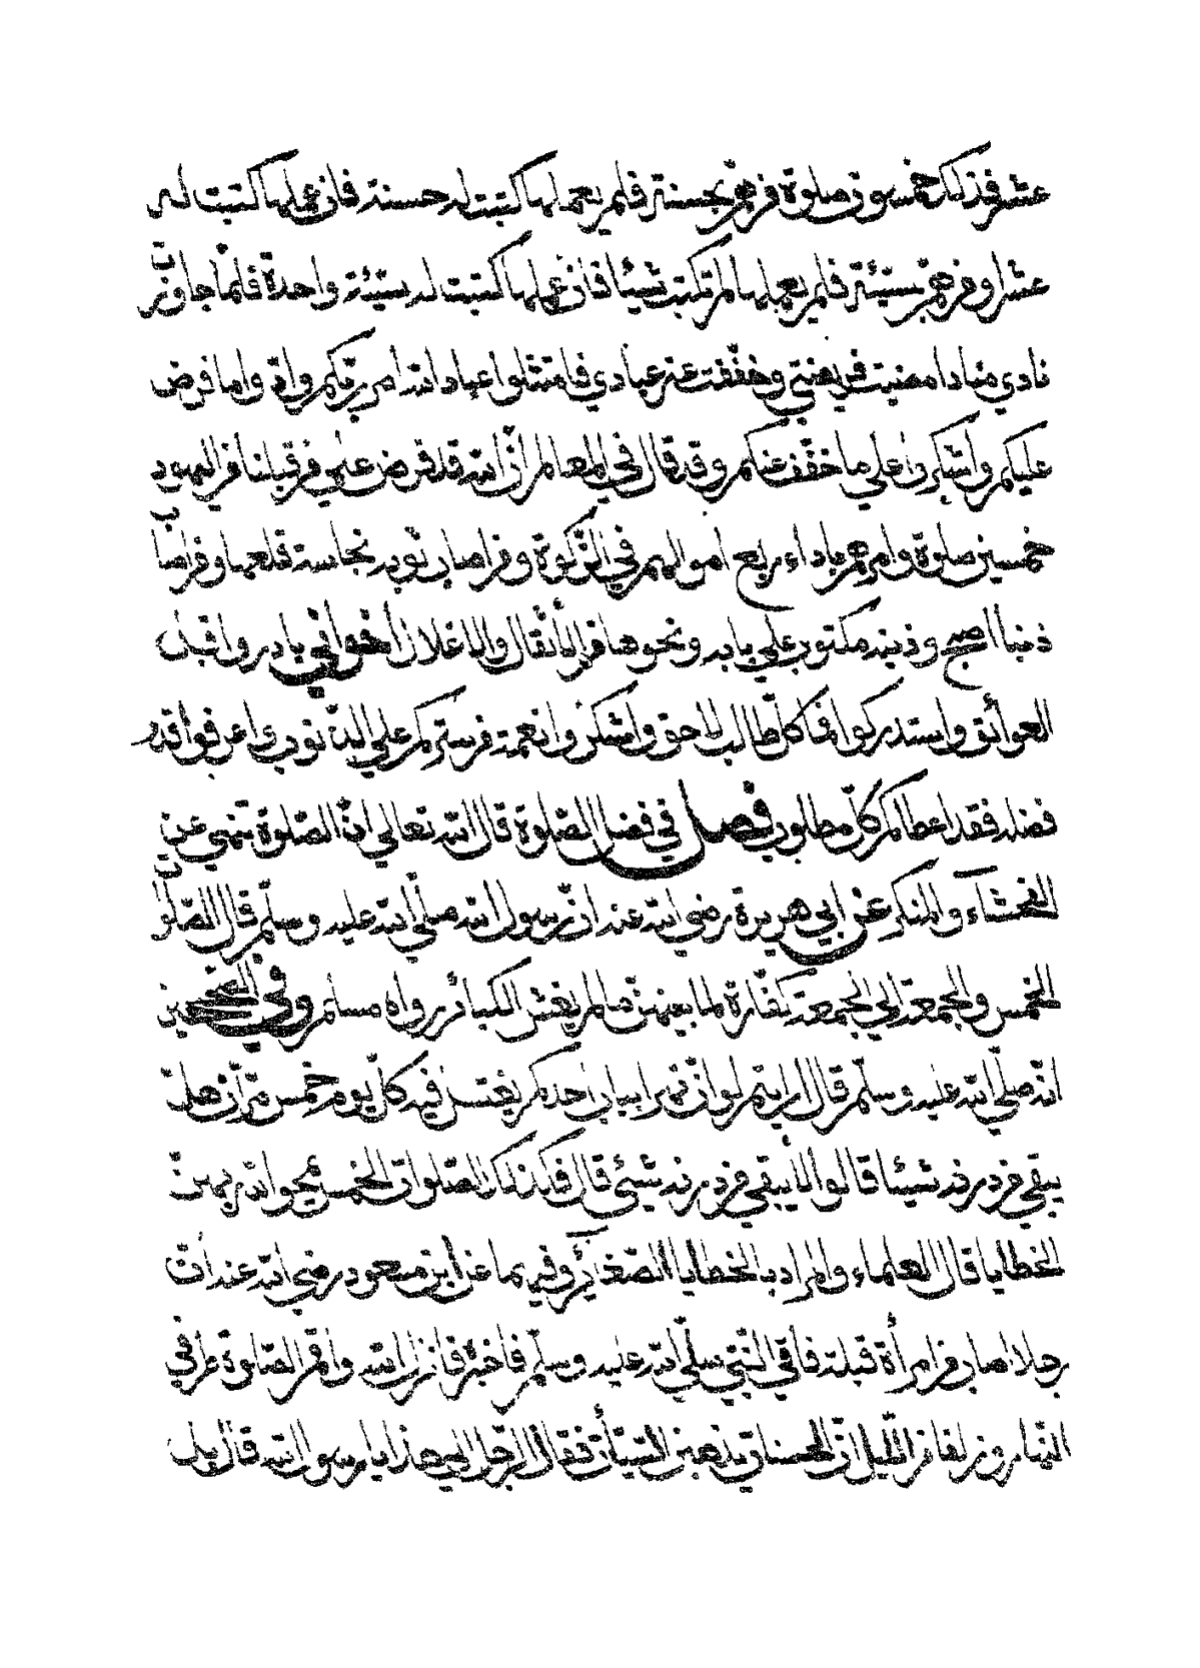 عشر فذلك خمسون صلوة فمن هم بحسنة فلم يعملها كتبت له حسنة فان عملها كتبت له
عشرا ومن هم بسيئة فلم يعملها لم تكتب شيئا فان عملها كتبت له سيئة واحدة فلما جاوزت
نادي مناد امضيت فريضتي وخففت عن عبادي فامتثلوا عباد الله امر ربكم وادوا ما فرض
عليكم واشكروا علي ما خفف عنكم وقد قال في المعالم ان الله قد فرض علي من قبلنا من اليهود
خمسين صلوة وامرهم باداء ربع اموالهم في الزكوة ومن اصاب ثوبه نجاسة قطعها ومن اصاب
ذنبا اصبح وذنبه مكتوب علي بابه ونحوها من الأثقال والاغلال اخواني بادروا قبل
العوائق واستدركوا فما كل طالب لاحق واشكروا نعمة من ستركم علي الذنوب واعرفوا قدر
فضله فقد اعطاكم كل مطلوب فصل في فضل الصلوة قال الله تعالي ان الصلوة تنهي عن
الفحشاء والمنكر عن ابي هريرة رضي الله عنه ان رسول الله صلي الله عليه وسلم قال الصلوات
الخمس والجمعة الي الجمعة كفارة لما بينهن ما لم يغش الكبائر رواه مسلم وفي الصحيحين
انه صلي الله عليه وسلم قال ارايتم لو ان نهرا بباب احدكم يغتسل فيه كل يوم خمس مرات هل
يبقي من درنه شيئا قالوا لا يبقي من درنه شيئ قال فكذلك الصلوات الخمس يمحوا الله بهن
الخطايا قال العلماء والمراد بالخطايا الصغائر وفيهما عن ابن مسعود رضي الله عنه ان
رجلا اصاب من امرأة قبلة فاتي النبي صلي الله عليه وسلم فاخبره فانزل الله واقم الصلوة طرفي
النهار وزلفا من الليل ان الحسنات يذهبن السيئات فقال الرجل الي هذا يا رسول الله قال بل